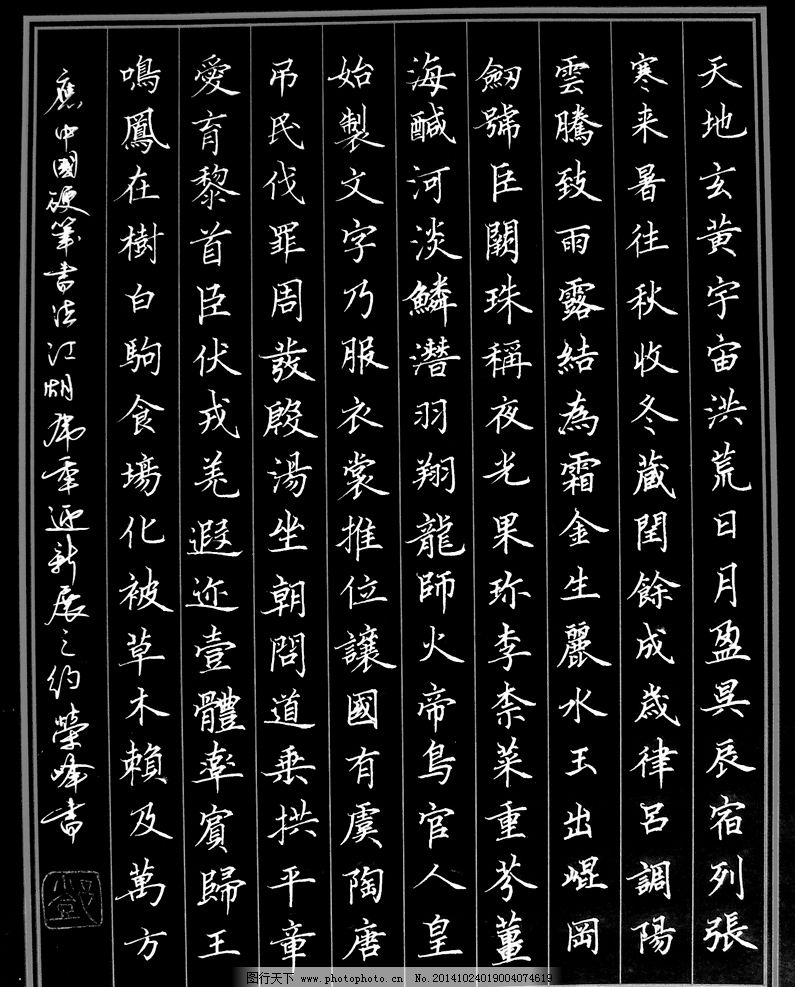 天地玄黄宇宙洪荒日月盈昃辰宿列張
寒来暑往秋收冬藏閏餘成歲律呂調陽
雲騰致雨露結為霜金生麗水玉出崐岡
劒號巨闕珠稱夜光果珎李柰菜重芥薑
海醎河淡鱗潛羽翔龍師火帝鳥官人皇
始製文字乃服衣裳推位讓國有虞陶唐
吊民伐罪周發殷湯坐朝問道垂拱平章
愛育黎首臣伏戎羌遐迩壹體率賓歸王
鳴鳳在樹白駒食場化被草木賴及萬方
應中國硬筆書法江湖迎新展之約榮峰書
图行天下 www.photophoto.cn No.20141024019004074619